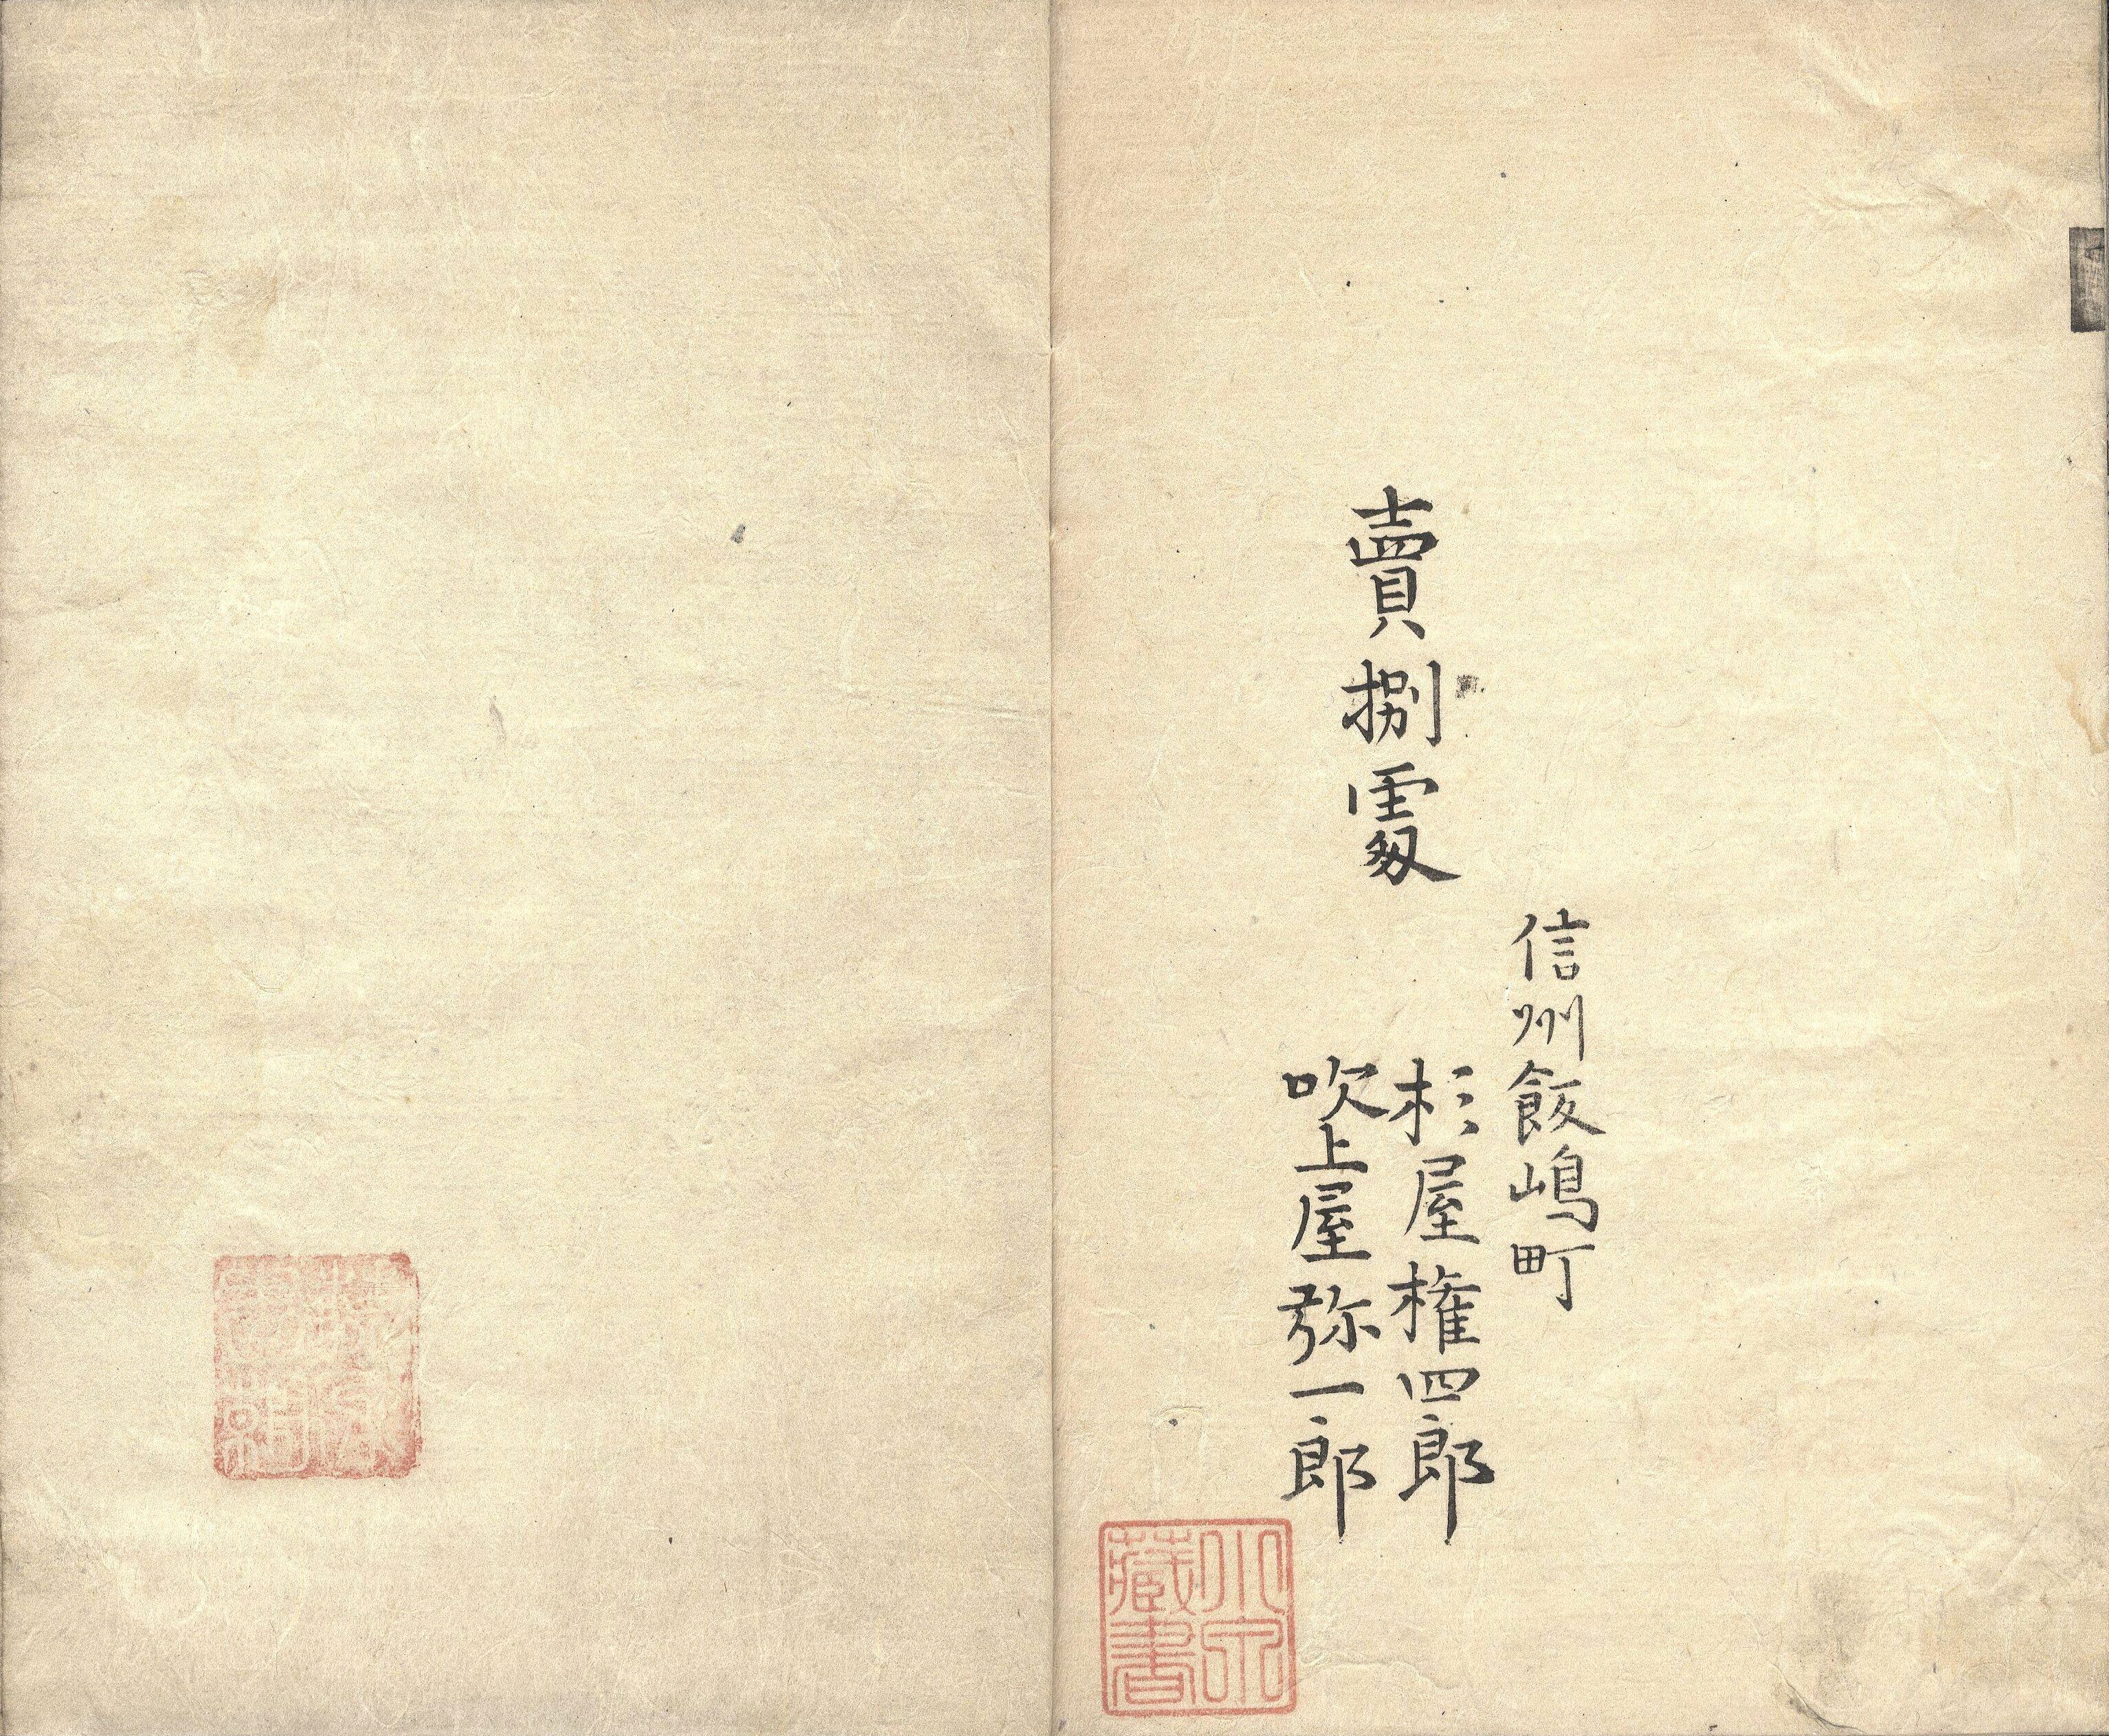 信州飯嶋町
賣捌處
杉屋権四郎
吹上屋弥一郎
藏書